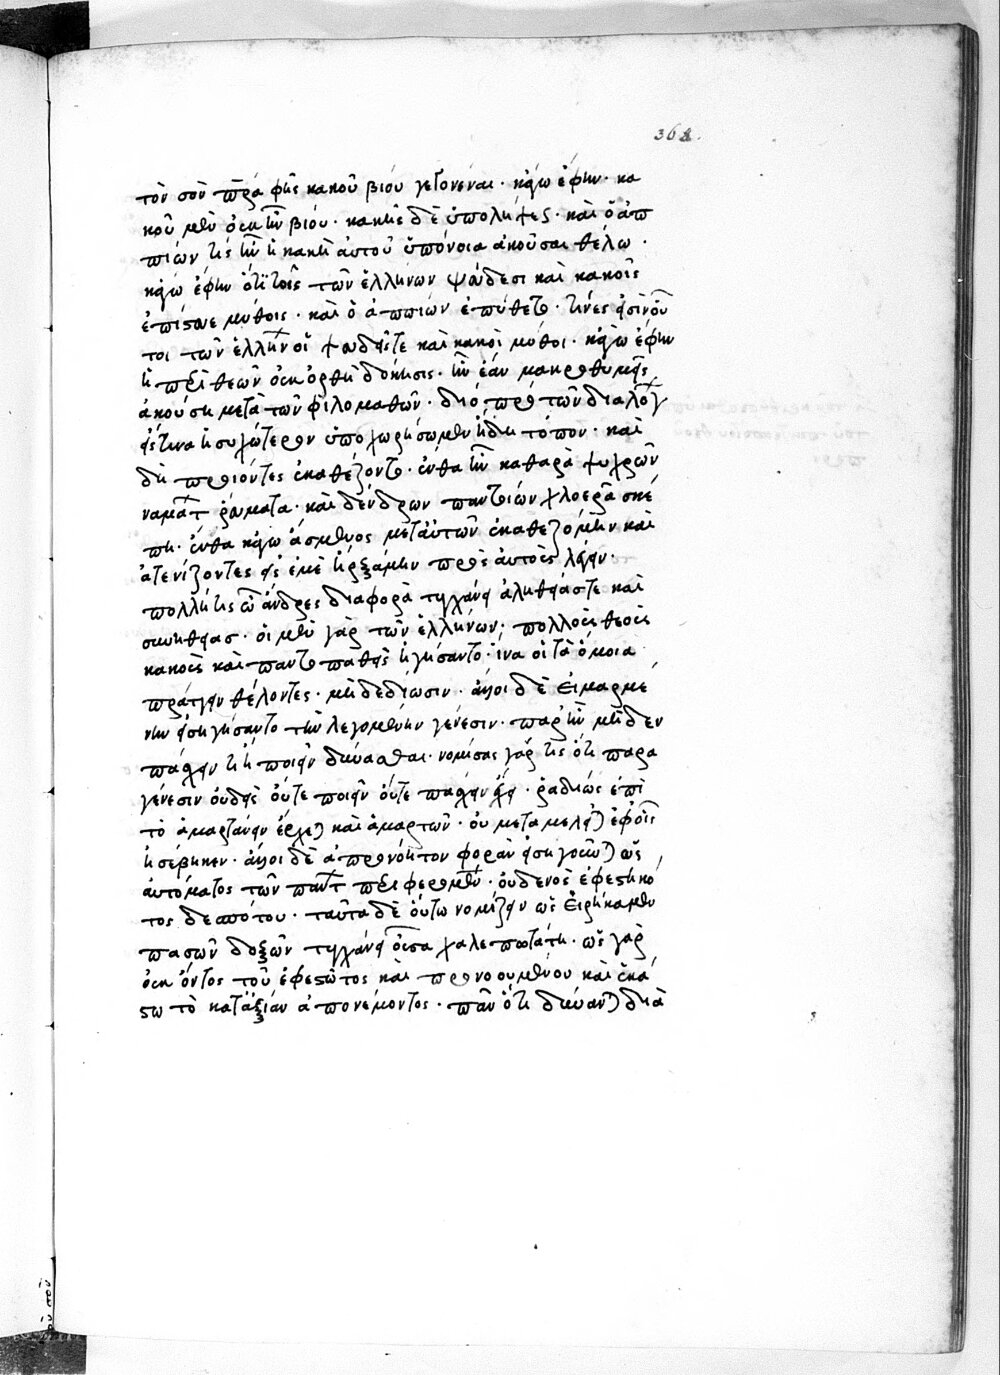 368.
τὸν σὸν πρά φῂς κακοῦ βίου γεγονέναι· κἀγὼ ἔφην· κα
κοῦ μὲν οὐκ ἦν βίου· κακῆς δὲ ὑπολήψεως· καὶ ὁ ἀπ
πιών τίς ἦν ἡ κακὴ αὐτοῦ ὑπόνοια ἀκοῦσαι θέλω·
κἀγὼ ἔφην ὅτι τοῖς τῶν ἑλλήνων ψεύδεσι καὶ κακοῖς
ἐπίστευε μύθοις· καὶ ὁ ἀππιών ἐπύθετο· τίνες εἰσὶν οὗ
τοι τῶν ἑλλήνων οἱ ψευδεῖς τε καὶ κακοὶ μύθοι· κἀγὼ ἔφην
ἡ περὶ θεῶν οὐκ ὀρθὴ δόκησις· ἣν ἐὰν μακροθυμῇς
ἀκούσῃ μετὰ τῶν φιλομαθῶν· διὸ πρὸ τῶν διαλόγων
εἴς τινα ἡσυχώτερον ὑποχωρήσωμεν ἤδη τόπον· καὶ
δὴ προιόντες ἐκαθέζοντο· ἔνθα ἦν καθαρὰ ψυχρῶν
ναμάτων ῥεύματα· καὶ δένδρων παντοίων χλοερὰ σκέ
πη· ἔνθα κἀγὼ ἄσμενος μετ αὐτῶν ἐκαθεζόμην καὶ
ἀτενίζοντες εἰς ἐμὲ ἠρξάμην πρὸς αὐτοὺς λέγειν·
πολλή τις ὦ ἄνδρες διαφορὰ τυγχάνει ἀληθείας τε καὶ
συνηθείασ· οἱ μὲν γὰρ τῶν ἑλλήνων; πολλοὺς θεοὺς
κακοὺς καὶ παντοπαθεῖς ἡγήσαντο· ἵνα οἱ τὰ ὅμοια
πράττειν θέλοντες· μὴ δεδίωσιν· ἄλλοι δὲ εἱμαρμέ
νην εἰσηγήσαντο τὴν λεγομένην γένεσιν· παρ ἣν μὴδεν
πάσχειν τι ἢ ποιεῖν δύνασθαι· νομίσας γάρ τις ὅτι παρα
γένεσιν οὐδεὶς οὔτε ποιεῖν οὔτε πάσχειν ἔχει· ῥαδίως ἐπὶ
τὸ ἁμαρτάνειν ἔρχεται καὶ ἁμαρτῶν· οὐ μεταμελεῖται ἐφ οἷς
ἠσέβηκεν· ἄλλοι δὲ ἀπρονόητον φορὰν εἰσηγοῦνται ὡς
αὐτομάτως τῶν πάντων περιφερομένων· οὐδενὸς ἐφεστηκό
τος δεσπότου· ταῦτα δὲ οὕτω νομίζειν ὡς εἰρήκαμεν
πασῶν δοξῶν τυγχάνει οὖσα χαλεπωτάτη· ὡς γὰρ
οὐκ ὄντος τοῦ ἐφεστῶτος καὶ προνοουμένου καὶ ἑκά
στω τὸ κατ᾽ἀξίαν ἀπονέμοντος· πᾶν ὅτι δύνανται διὰ